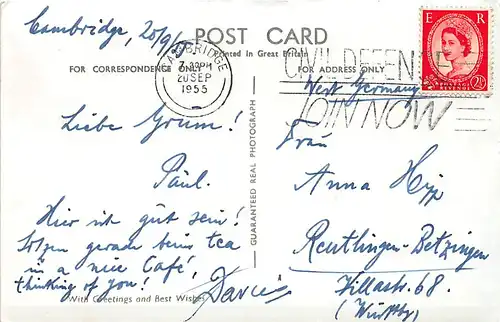 Cambridge, 20/9/55
POST CARD
Printed in Great Britain
FOR CORRESPONDENCE ONLY
FOR ADDRESS ONLY
CAMBRIDGE
20 SEP
1955
CIVIL DEFENCE
JOIN NOW
E R
REVENUE
2½
West Germany
Liebe
Paul.
Hier ist gut sein!
Sitzen gerade beim tea
in a nice Café,
thinking of you!
With Greetings and Best Wishes
GUARANTEED REAL PHOTOGRAPH
Frau
Anna Hipp
Reutlingen-Betzingen
Villastr. 68.
(Württbg)